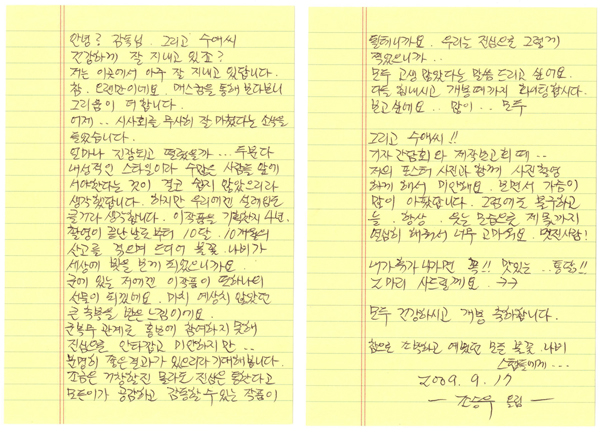 안녕? 감독님. 그리고 수애씨
건강하게 잘 지내고 있죠?
저는 이곳에서 아주 잘 지내고 있답니다.
참. 오랜만이네요. 매스컴을 통해 보다보니
그리움이 더 합니다.
어제 .. 시사회를 무사히 잘 마쳤다는 소식을
들었습니다.
얼마나 긴장되고 떨렸을까 ... 두분 다
내성적인 스타일이라 수많은 사람들 앞에
서야한다는 것이 결코 쉽지 않았으리라
생각했답니다. 하지만 우리에겐 설레임도
컸기라 생각합니다. 이작품을 기획한지 4년.
촬영이 끝난 날로부터 10달. 10개월의
산고를 겪으며 드디어 불꽃 나비가
세상에 빛을 받게 되었으니까요.
군에 있는 저에겐 이 작품이 또하나의
선물이 되겠네요. 마치 예상치 않았던
큰 축복을 받은 느낌이에요.
군복무 관계로 홍보에 참여하지 못해
진심으로 안타깝고 미안하지만 ..
분명히 좋은결과가 있으리라 기대해봅니다.
조금은 거창할진 몰라도 진심은 통한다고
모든이가 공감하고 감동할 수 있는 작품이
될테니까요. 우리는 진심으로 그렇게
찍었으니까 ..
모두 고생 많았다는 말씀 드리고 싶어요.
다들 힘내시고 개봉때까지 화이팅합시다.
보고싶네요 .. 많이 .. 모두
그리고 수애씨!!
기자 간담회와 제작보고회 때 ..
저의 포스터 사진과 함께 사진촬영
하게 해서 미안해요. 보면서 가슴이
많이 아팠답니다. 그럼에도 불구하고
늘. 항상. 웃는 모습으로 제 몫까지
열심히 해줘서 너무 고마워요. 멋진사람!
내가 휴가 나가면 꼭!! 맛있는 .. 통닭!!
2마리 사드릴께요. ㅋㅋ
모두 건강하시고 개봉 축하합니다.
참으로 소박하고 예뻤던 모든 불꽃 나비
스탭들에게 ...
2009. 9. 17
— 조승우 드림 —